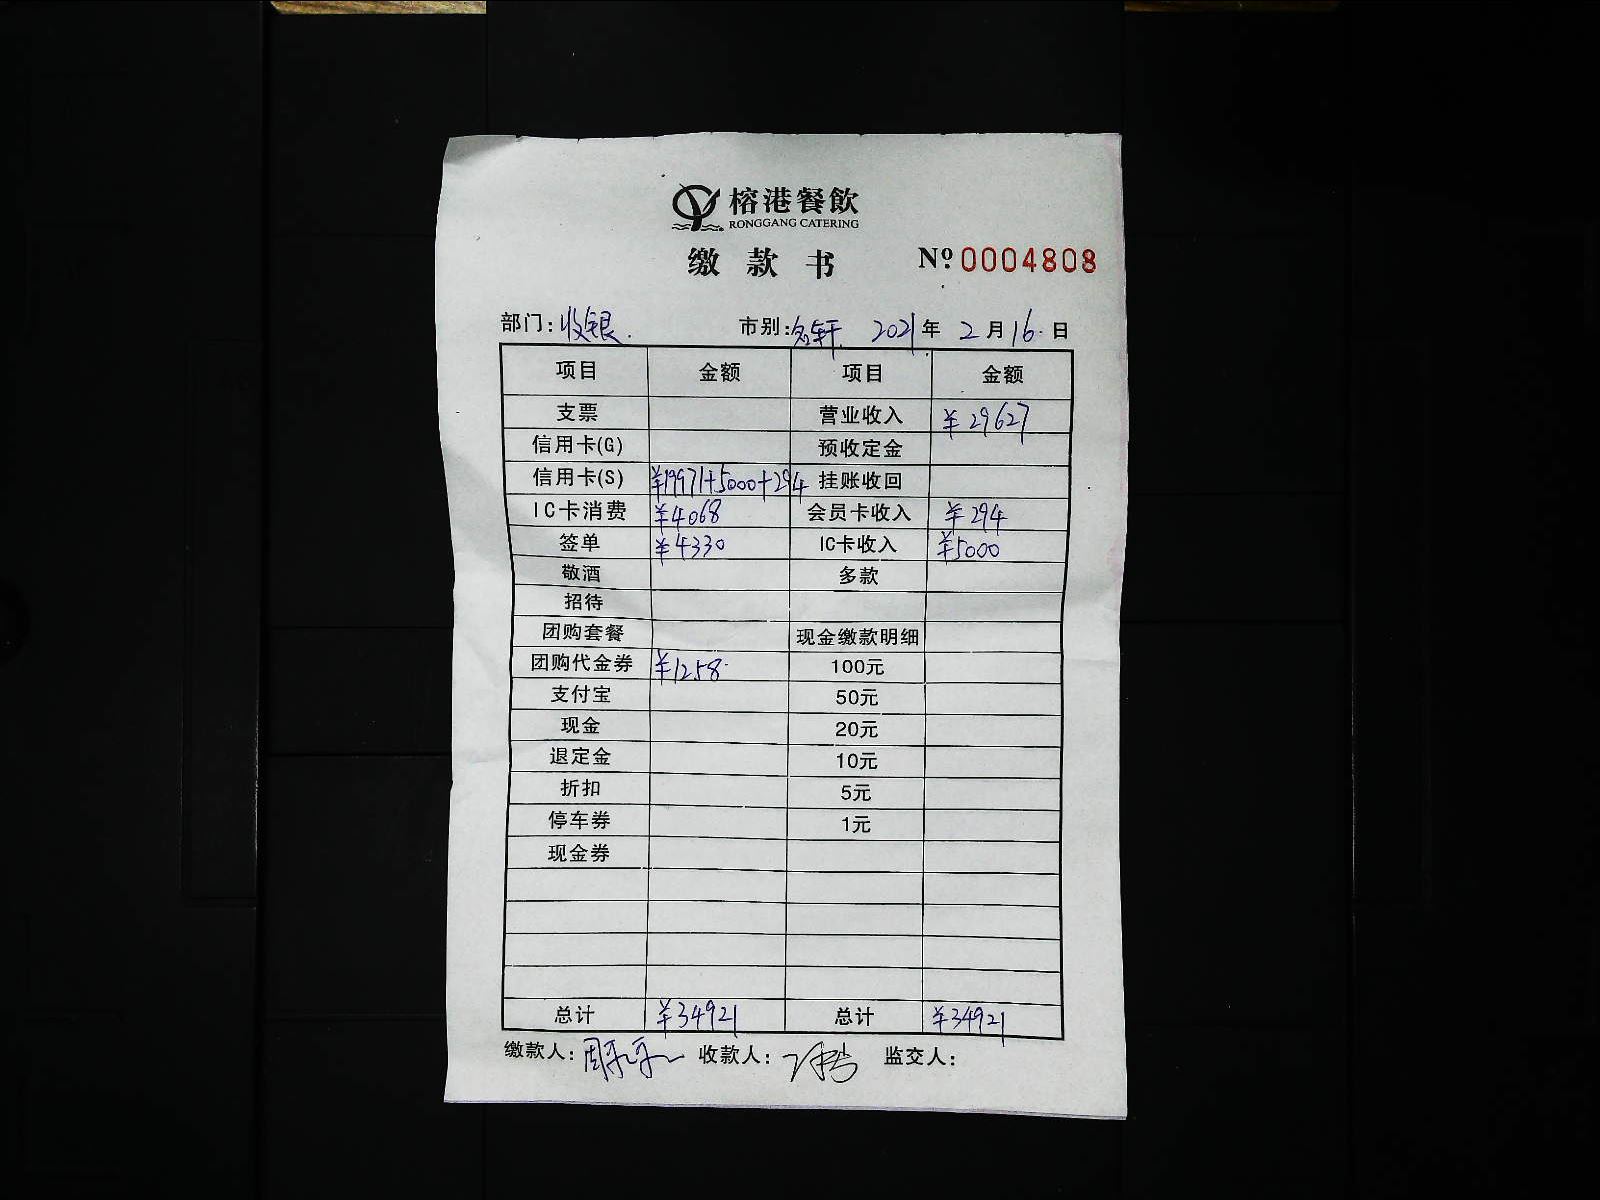 榕港餐飲
RONGGANG CATERING
缴款书 Nº 0004808
部门：收银. 市别：名轩 2021年 2月16日
项目 金额 项目 金额
支票 营业收入 ¥29627
信用卡(G) 预收定金
信用卡(S) ¥19971+5000+294 挂账收回
IC卡消费 ¥4068 会员卡收入 ¥294
签单 ¥4330 IC卡收入 ¥5000
敬酒 多款
招待
团购套餐 现金缴款明细
团购代金券 ¥1258 100元
支付宝 50元
现金 20元
退定金 10元
折扣 5元
停车券 1元
现金券
总计 ¥34921 总计 ¥34921
缴款人：周 收款人： 监交人：